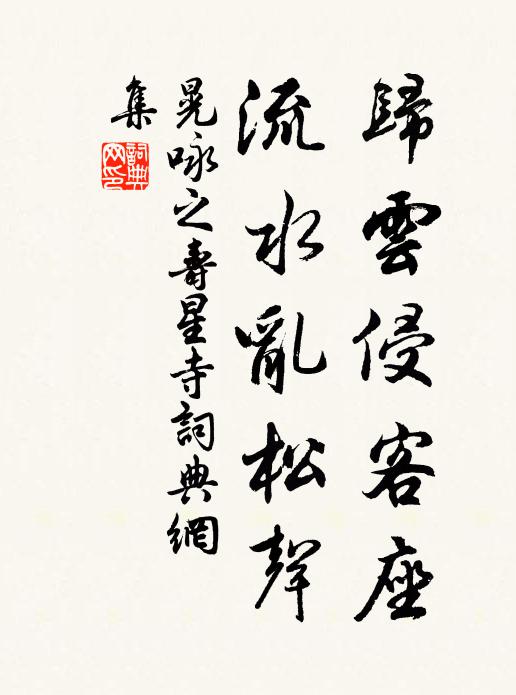 歸雲侵客座
流水亂松聲
晁咏之壽星寺詞典網
集
詞典網印